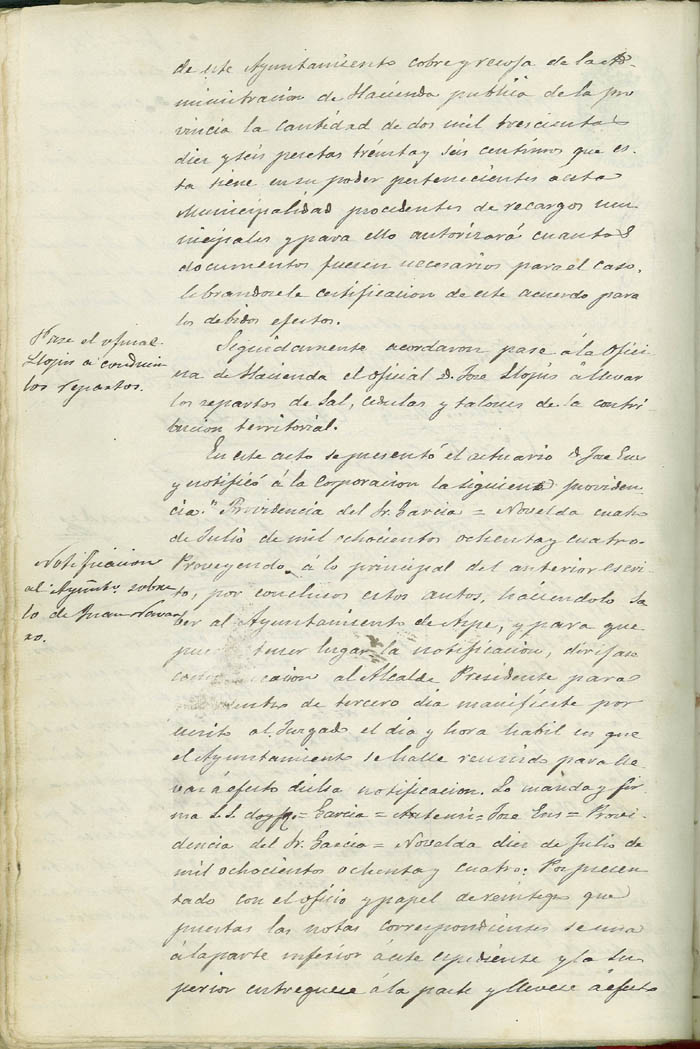 de este Ayuntamiento cobre y recoja de la Ad-
ministracion de Hacienda publica de la pro
vincia la cantidad de dos mil trescientas
diez y seis pesetas treinta y seis centimos que es-
ta tiene en su poder pertenecientes á esta
Municipalidad procedentes de recargos mu-
nicipales y para ello autorizará cuantos
documentos fuesen necesarios para el caso,
librandosele certificacion de este acuerdo para
los debidos efectos.
Pase el oficial
Llopis a conducir
los repartos.
Seguidamente acordaron pase á la Ofici
na de Hacienda el oficial D. Jose Llopis á llevar
los repartos de Sal, cedulas y talones de la contri
bucion territorial.
En este acto se presentó el actuario D. Jose
y notificó á la Corporacion la siguiente providen
cia." Providencia del Sr. Garcia = Novelda cuatro
de Julio de mil ochocientos ochenta y cuatro.
Notificacion
al Ayunto. sobre
lo de Juan Navar
ro.
Proveyendo á lo principal del anterior escri-
to, por conclusos estos autos, haciendolo sa
ber al Ayuntamiento de Aspe, y para que
tener lugar la notificacion, dirijase
al Alcalde Presidente para
de tercero dia manifieste por
escrito al Juzgado el dia y hora habil en que
el Ayuntamiento se halle reunido para lle
var á efecto dicha notificacion. Lo manda y fir
ma S.S. doy fe = Garcia = Antemi = Jose = Provi-
dencia del Sr. Garcia = Novelda diez de Julio de
mil ochocientos ochenta y cuatro. Por presen
tado con el oficio y papel de reintegro que
puestas las notas correspondientes se una
á la parte inferior á este espediente y la Su
perior entreguese á la parte y llevese á efecto